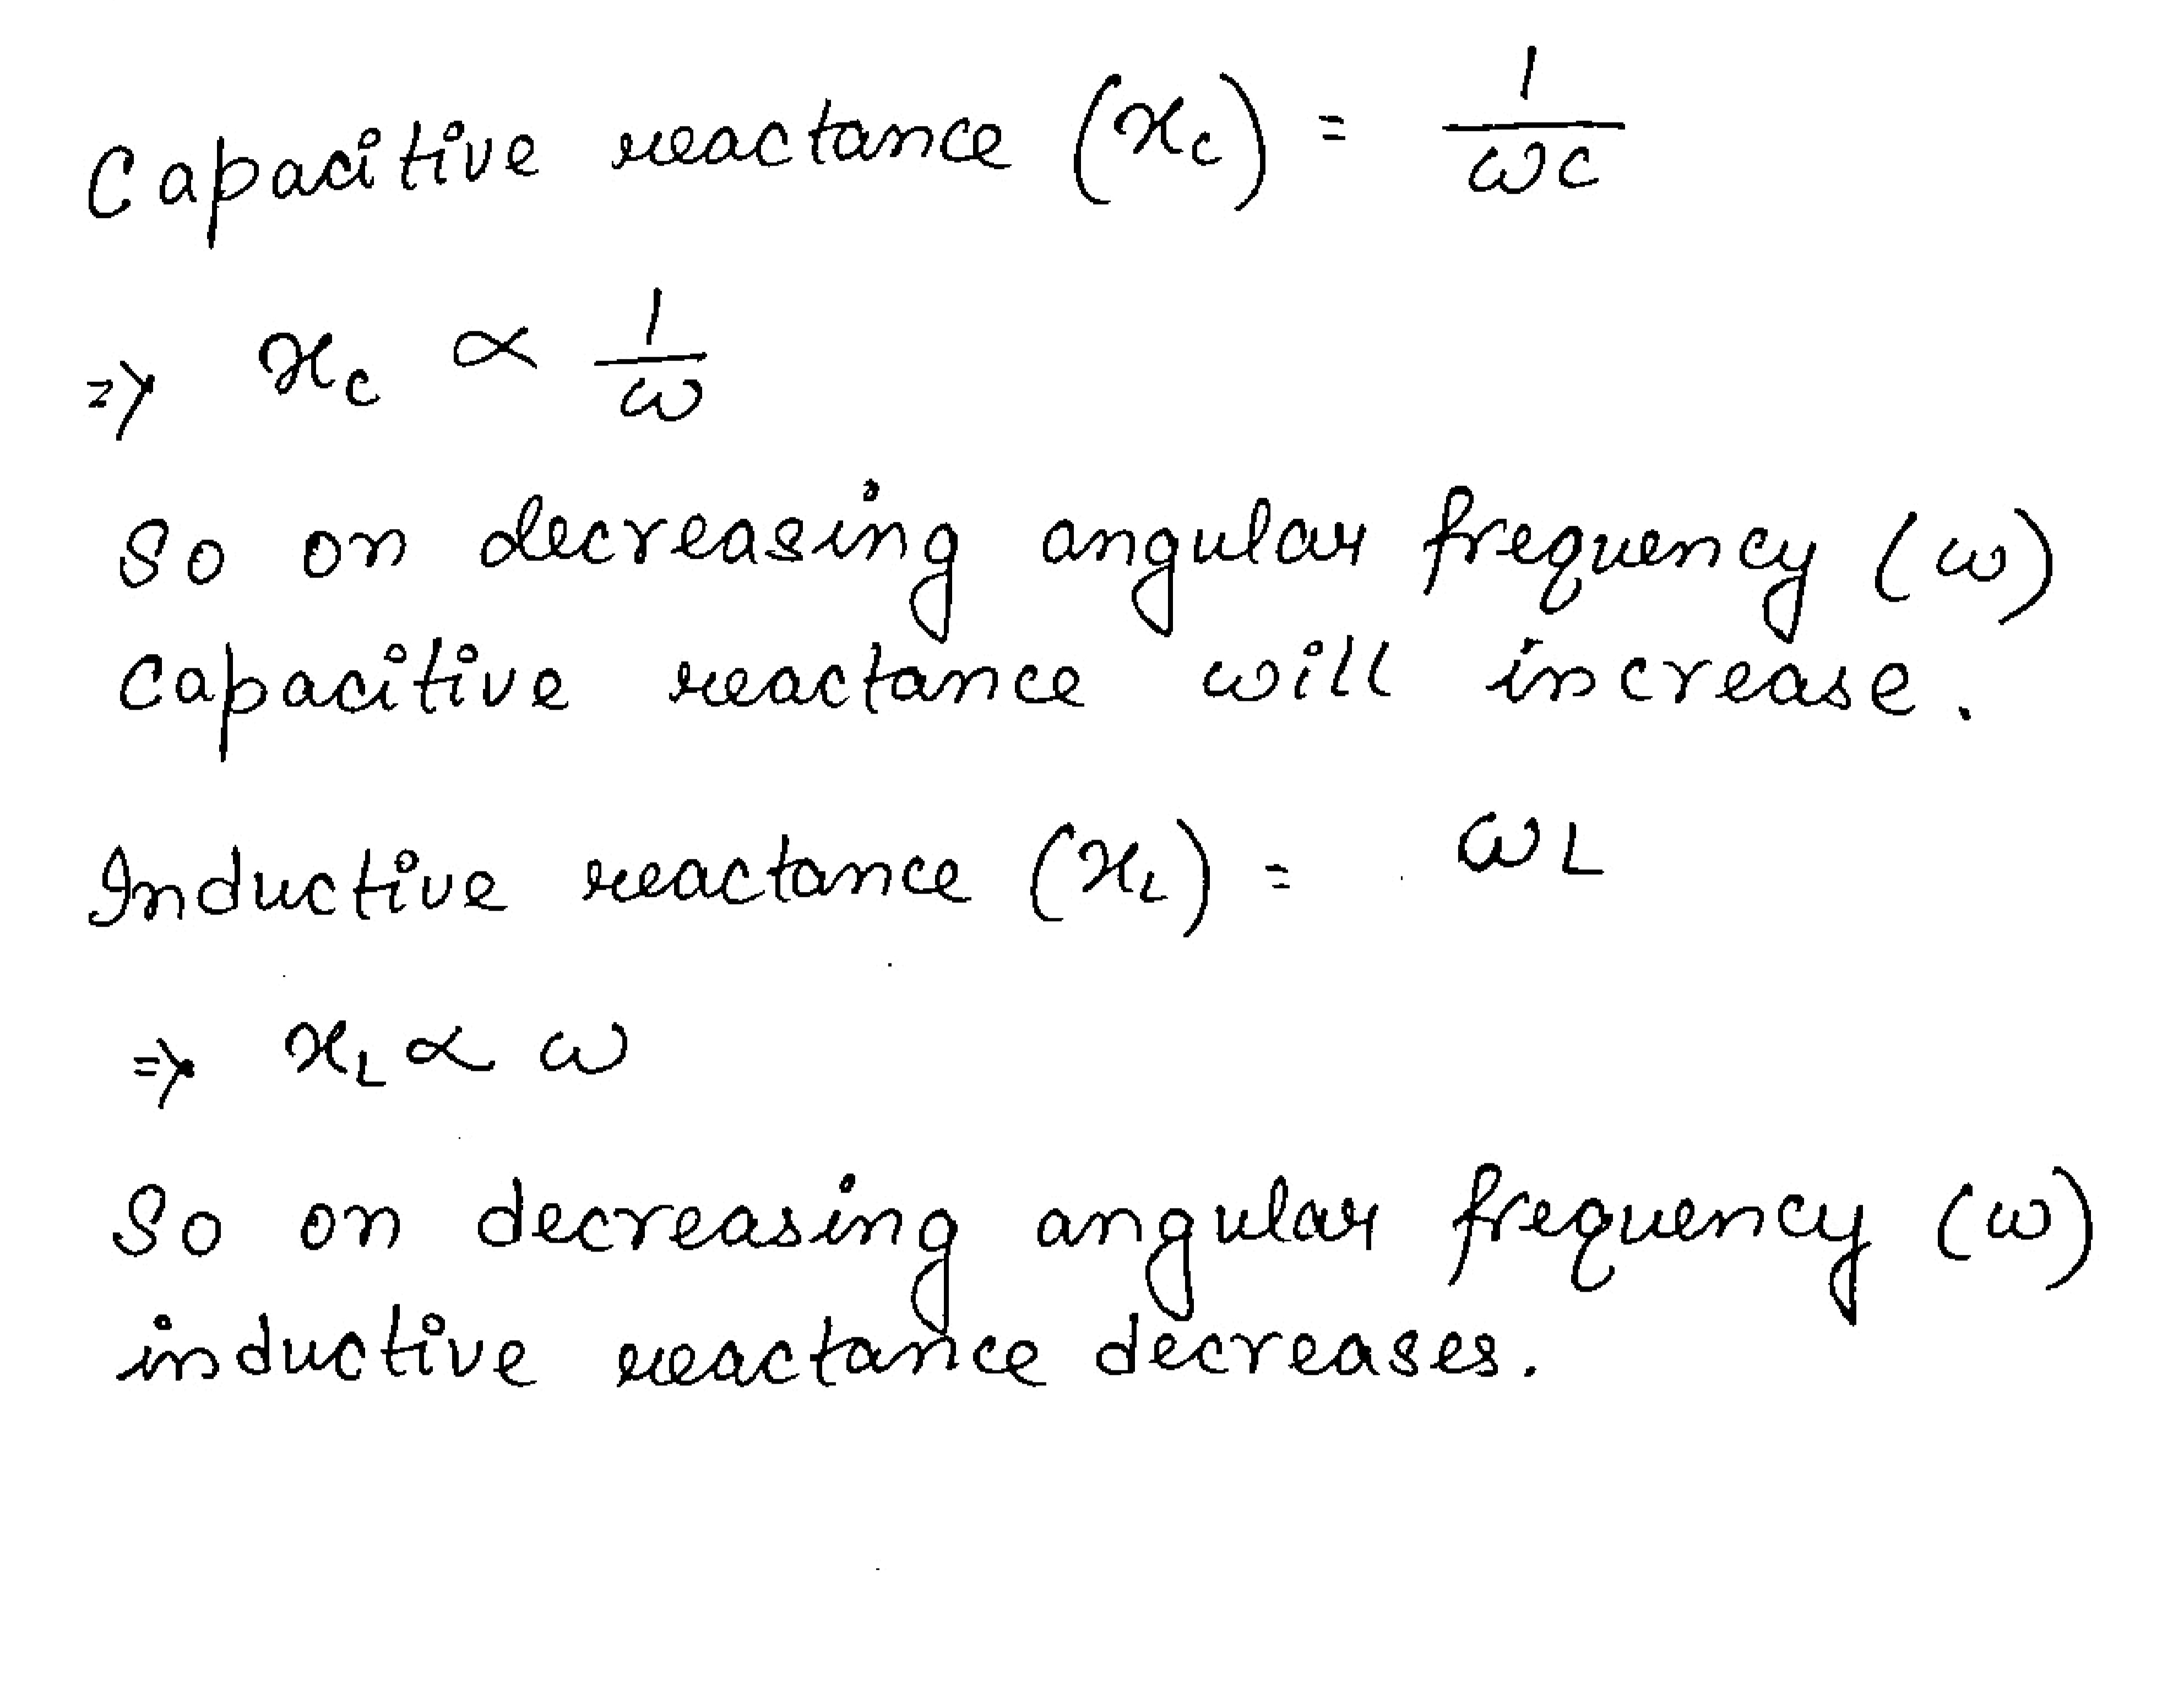 Capacitive reactance (x_c) = 1/ωC
=> x_c ∝ 1/ω
So on decreasing angular frequency (ω)
Capacitive reactance will increase.
Inductive reactance (x_L) = ωL
=> x_L ∝ ω
So on decreasing angular frequency (ω)
inductive reactance decreases.